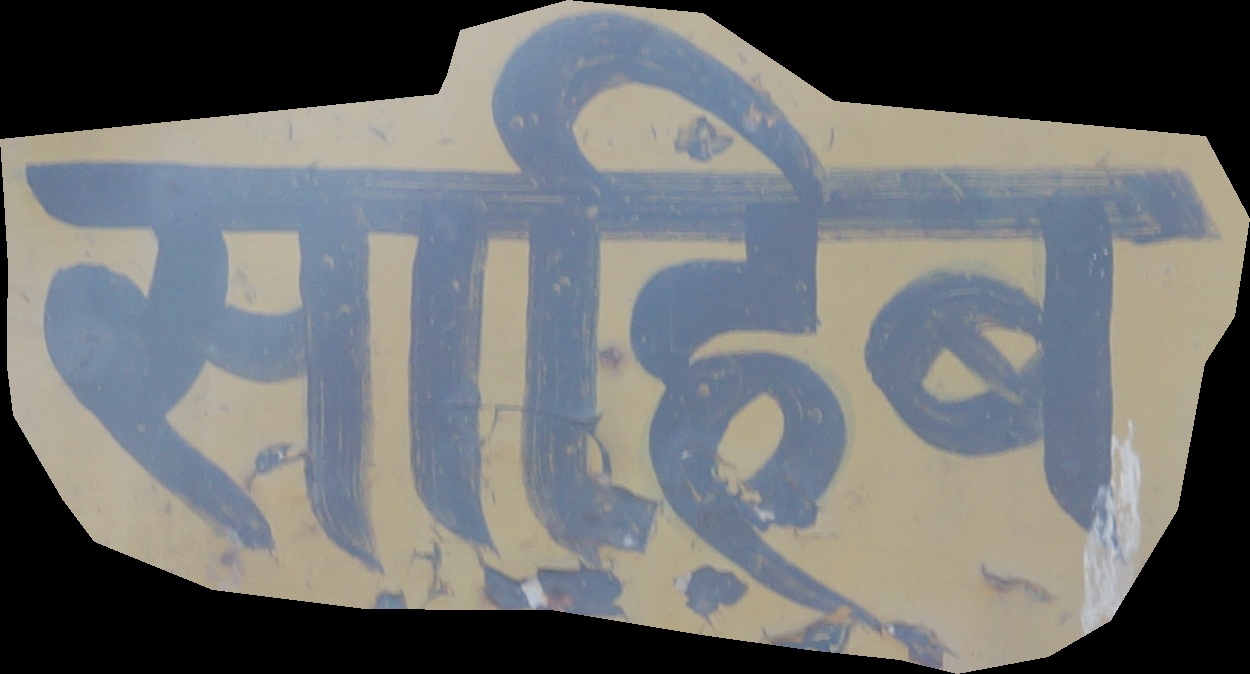 साहिब